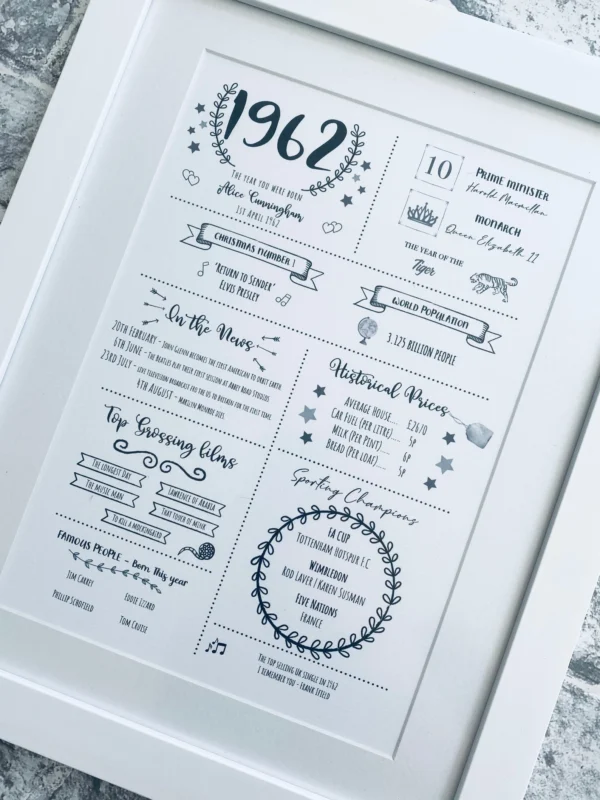 1962
The year you were born
Alice Cunningham
1st April 1962
10
Prime Minister
Harold Macmillan
Monarch
Queen Elizabeth II
The year of the
Tiger
Christmas Number 1
'Return to Sender'
Elvis Presley
World Population
3.125 Billion people
In the News
20th February - John Glenn becomes the first American to orbit Earth.
6th June - The Beatles play their first session at Abbey Road Studios
23rd July - Live television broadcast from the US to Britain for the first time
4th August - Marilyn Monroe dies.
Historical Prices
Average House.... £2670
Car Fuel (per litre).... 5p
Milk (per pint).... 6p
Bread (per loaf).... 5p
Top Grossing films
The Longest Day
Lawrence of Arabia
The Music Man
That Touch of Mink
To Kill a Mockingbird
Famous People - Born this year
Jim Carrey
Eddie Izzard
Phillip Schofield
Tom Cruise
Sporting Champions
FA Cup
Tottenham Hotspur F.C
Wimbledon
Rod Laver / Karen Susman
Five Nations
France
The top selling UK single in 1962
I remember you - Frank Ifield